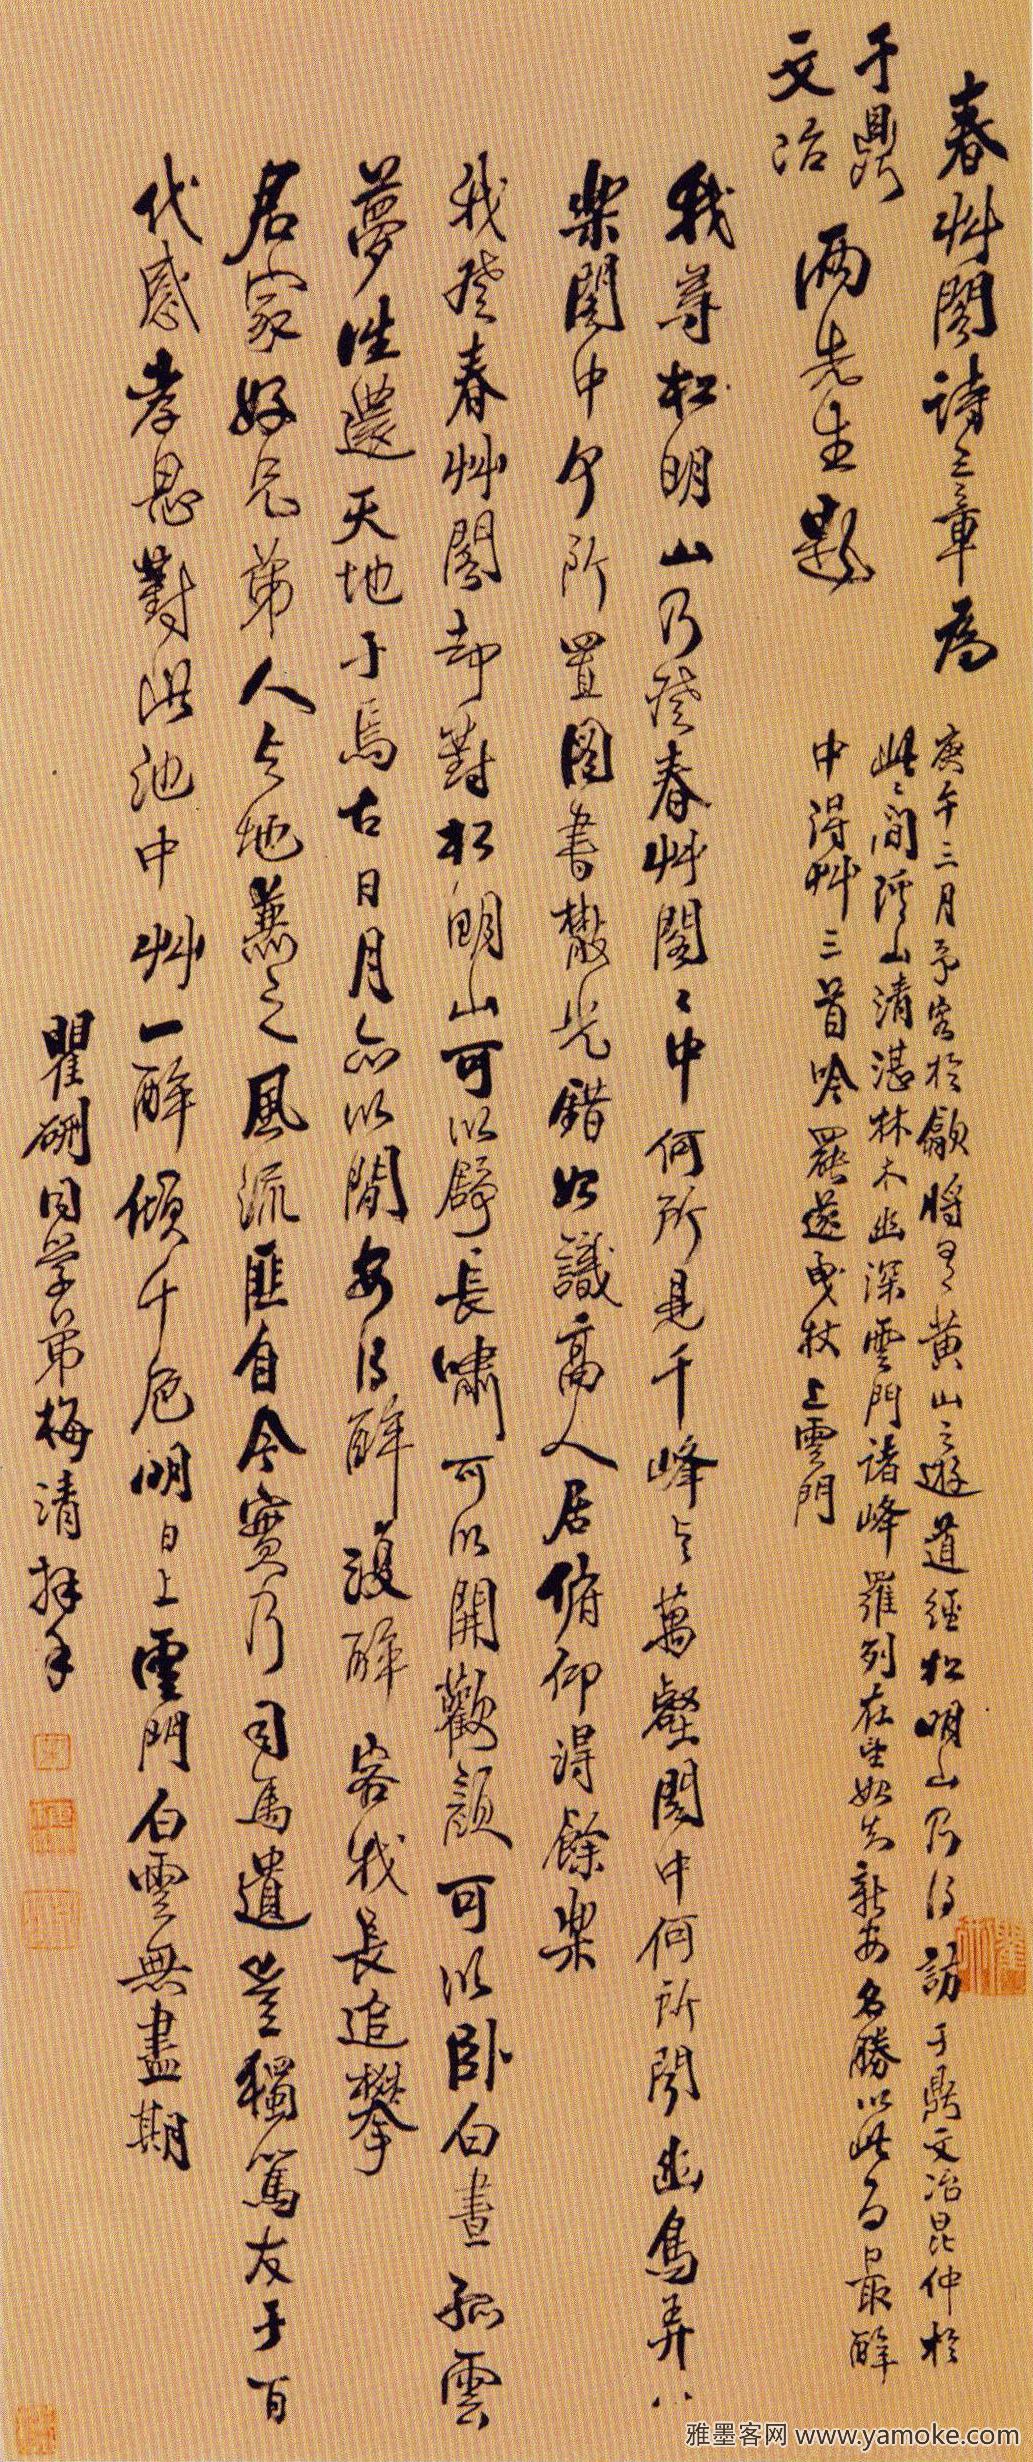 春艸閣詩三章為
于鼎
文冶 兩先生題
庚午三月予客於歙將有黃山之遊道經松明山乃得訪于鼎文冶昆仲於
此〻間陘山清湛林木幽深雲門諸峰羅列在望如知新安名勝以此為最醉
中得艸三首吟罷遂曳杖上雲門
我尋松明山乃登春艸閣〻中何所見千峰與萬壑閣中何所聞幽鳥弄
樂閣中何所置圖書散光錯如識高人居俯仰得餘樂
我登春艸閣却對松明山可以舒長嘯可以開歡顏可以臥白晝孤雲
夢往還天地于焉古日月亦以閒安得醉復醉容我長追攀
君家好兄弟人與地兼之風流匪自今實乃司馬遺豈獨篤友于百
代感孝思對此池中艸一醉傾千卮明日上雲門白雲無盡期
瞿硎同學弟梅清拜手
雅墨客网 www.yamoke.com